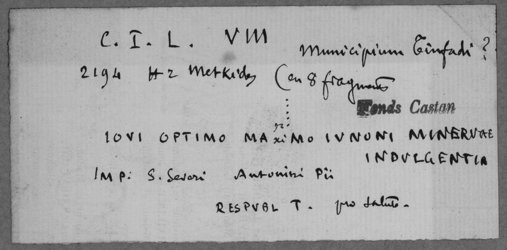 C. I. L. VIII
Municipium Tinfadi ?
2194 Hr Metkidès (en 8 fragments
Fonds Castan
IOVI OPTIMO MAXIMO IVNONI MINERVAE
INDULGENTIA
IMP. S. Severi Antonini Pii
RESPUBL T. pro salute.